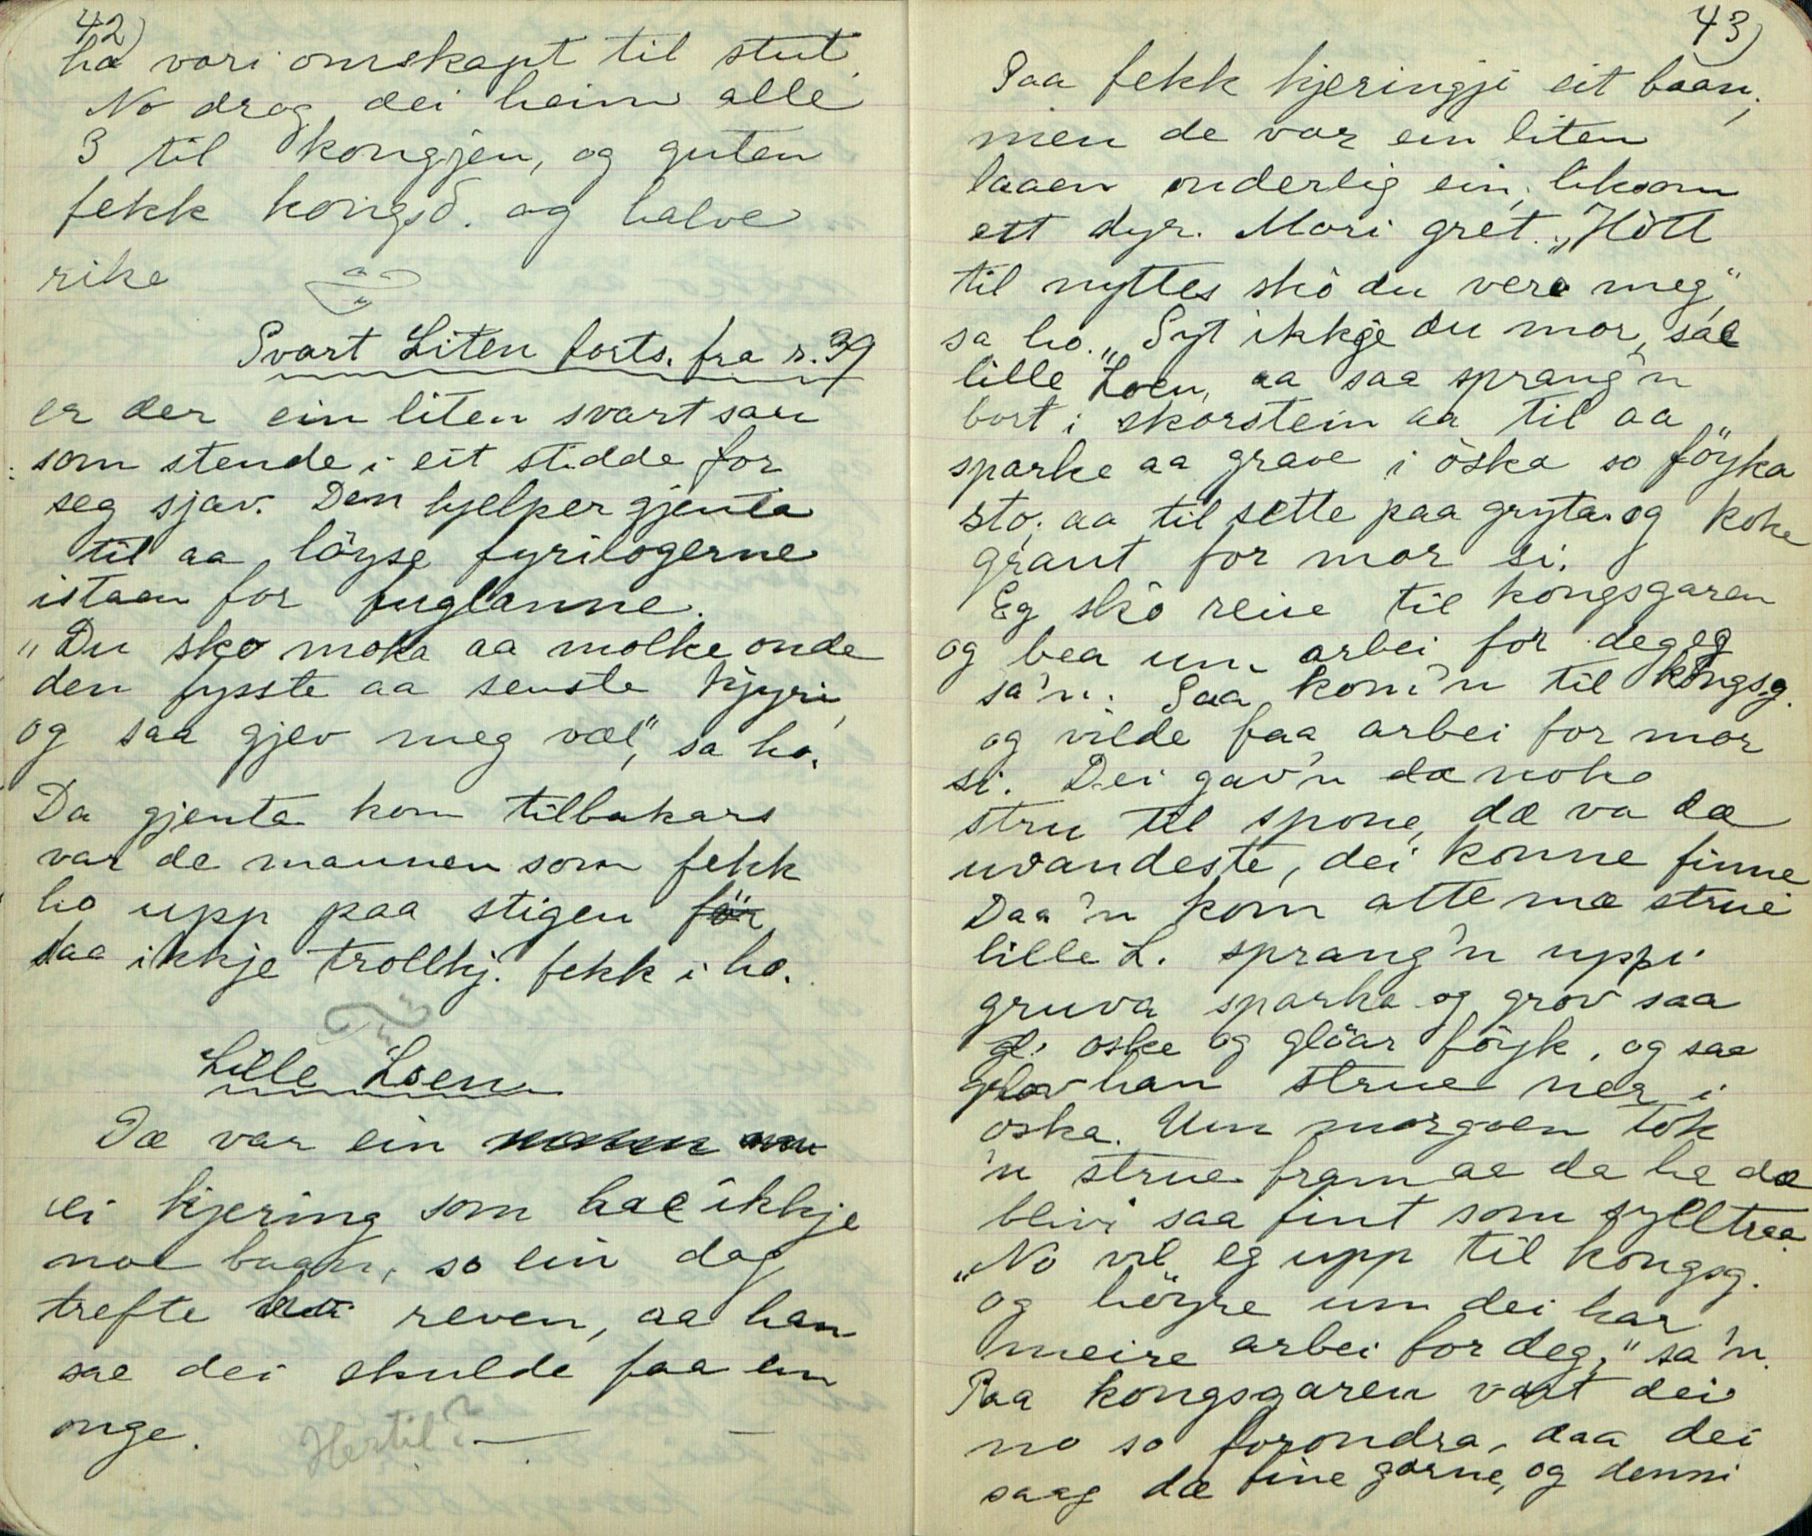 42)
ha vori omskapt til stut.
No drog dei heim alle
3 til kongjen, og guten
fekk kongsd. og halve
rike
Svart Liten forts. fra s. 39
er der ein liten svart sau
som stende i eit stidde for
seg sjav. Den hjelper gjenta
til aa löyse fyrilogerne
istaan for fuglanne.
"Du sko moka aa molke onde
den fysste aa senste kjyri,
og saa gjev meg væl", sa ho.
Da gjenta kom tilbakars
var de mannen som fekk
ho upp paa stigen för
saa ikkje trollkj. fekk i ho.
Lille Loen
Dæ var ein mann
ei kjering som hae ikkje
noe baan, so ein dag
trefte reven, aa han
sae dei skulde faa ein
onge.
Hertil?
43)
Saa fekk kjeringji eit baan,
men de var ein liten
laaen onderlig ein, liksom
ett dyr. Mori gret. "Hött
til nyttes skó du vere meg",
sa ho. "Syt ikkje du mor, sae
lille Loen, aa saa sprang'n
bort i skorstein aa til aa
sparke aa grave i öska so föyka
sto, aa til sette paa gryta og koke
graut for mor si.
Eg skó reise til kongsgaren
og bea um arbei for deg eg
sa'n. Saa kom'n til kongsg.
og vilde faa arbei for mor
si. Dei gav'n da noko
stru til spone, dæ va dæ
uvandeste, dei konne finne
Daa'n kom atte mæ strue
lille L. sprang'n uppi
gruva sparka og grov saa
oske og glöar föyk, og saa
grov han strue ner i
oska. Um morgoen tok
'n strue fram ae da he dæ
blivi saa fint som sylltraa.
"No vil eg upp til kongsg.
og höyre um dei har
meire arbei for deg," sa'n.
Paa kongsgaren vart dei
no so forondra, daa dei
saag dæ fine garne, og denni